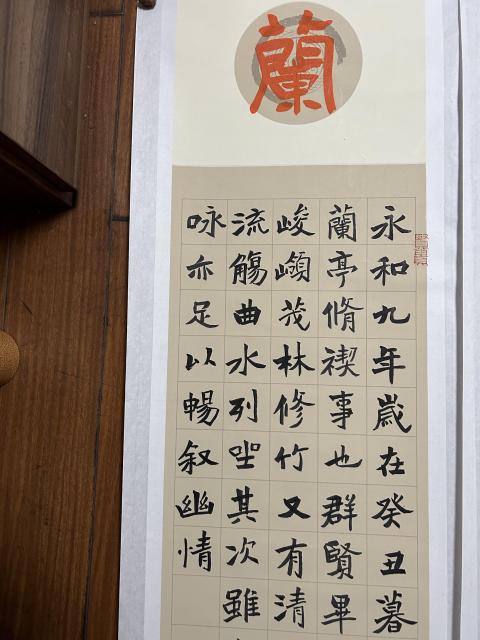 蘭
永和九年歲在癸丑暮
蘭亭脩禊事也群賢畢
峻嶺茂林修竹又有清
流觴曲水列坐其次雖
咏亦足以暢叙幽情